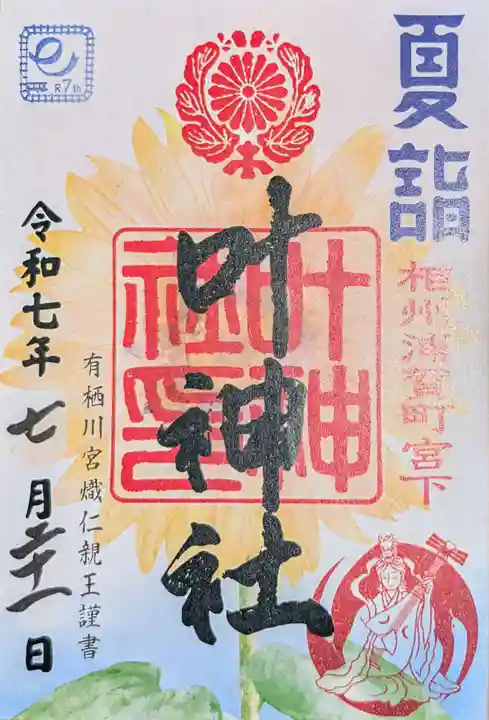 夏詣
相州浦賀町宮下
叶神社
叶神社印
有栖川宮熾仁親王謹書
令和七年七月二十一日
R7th